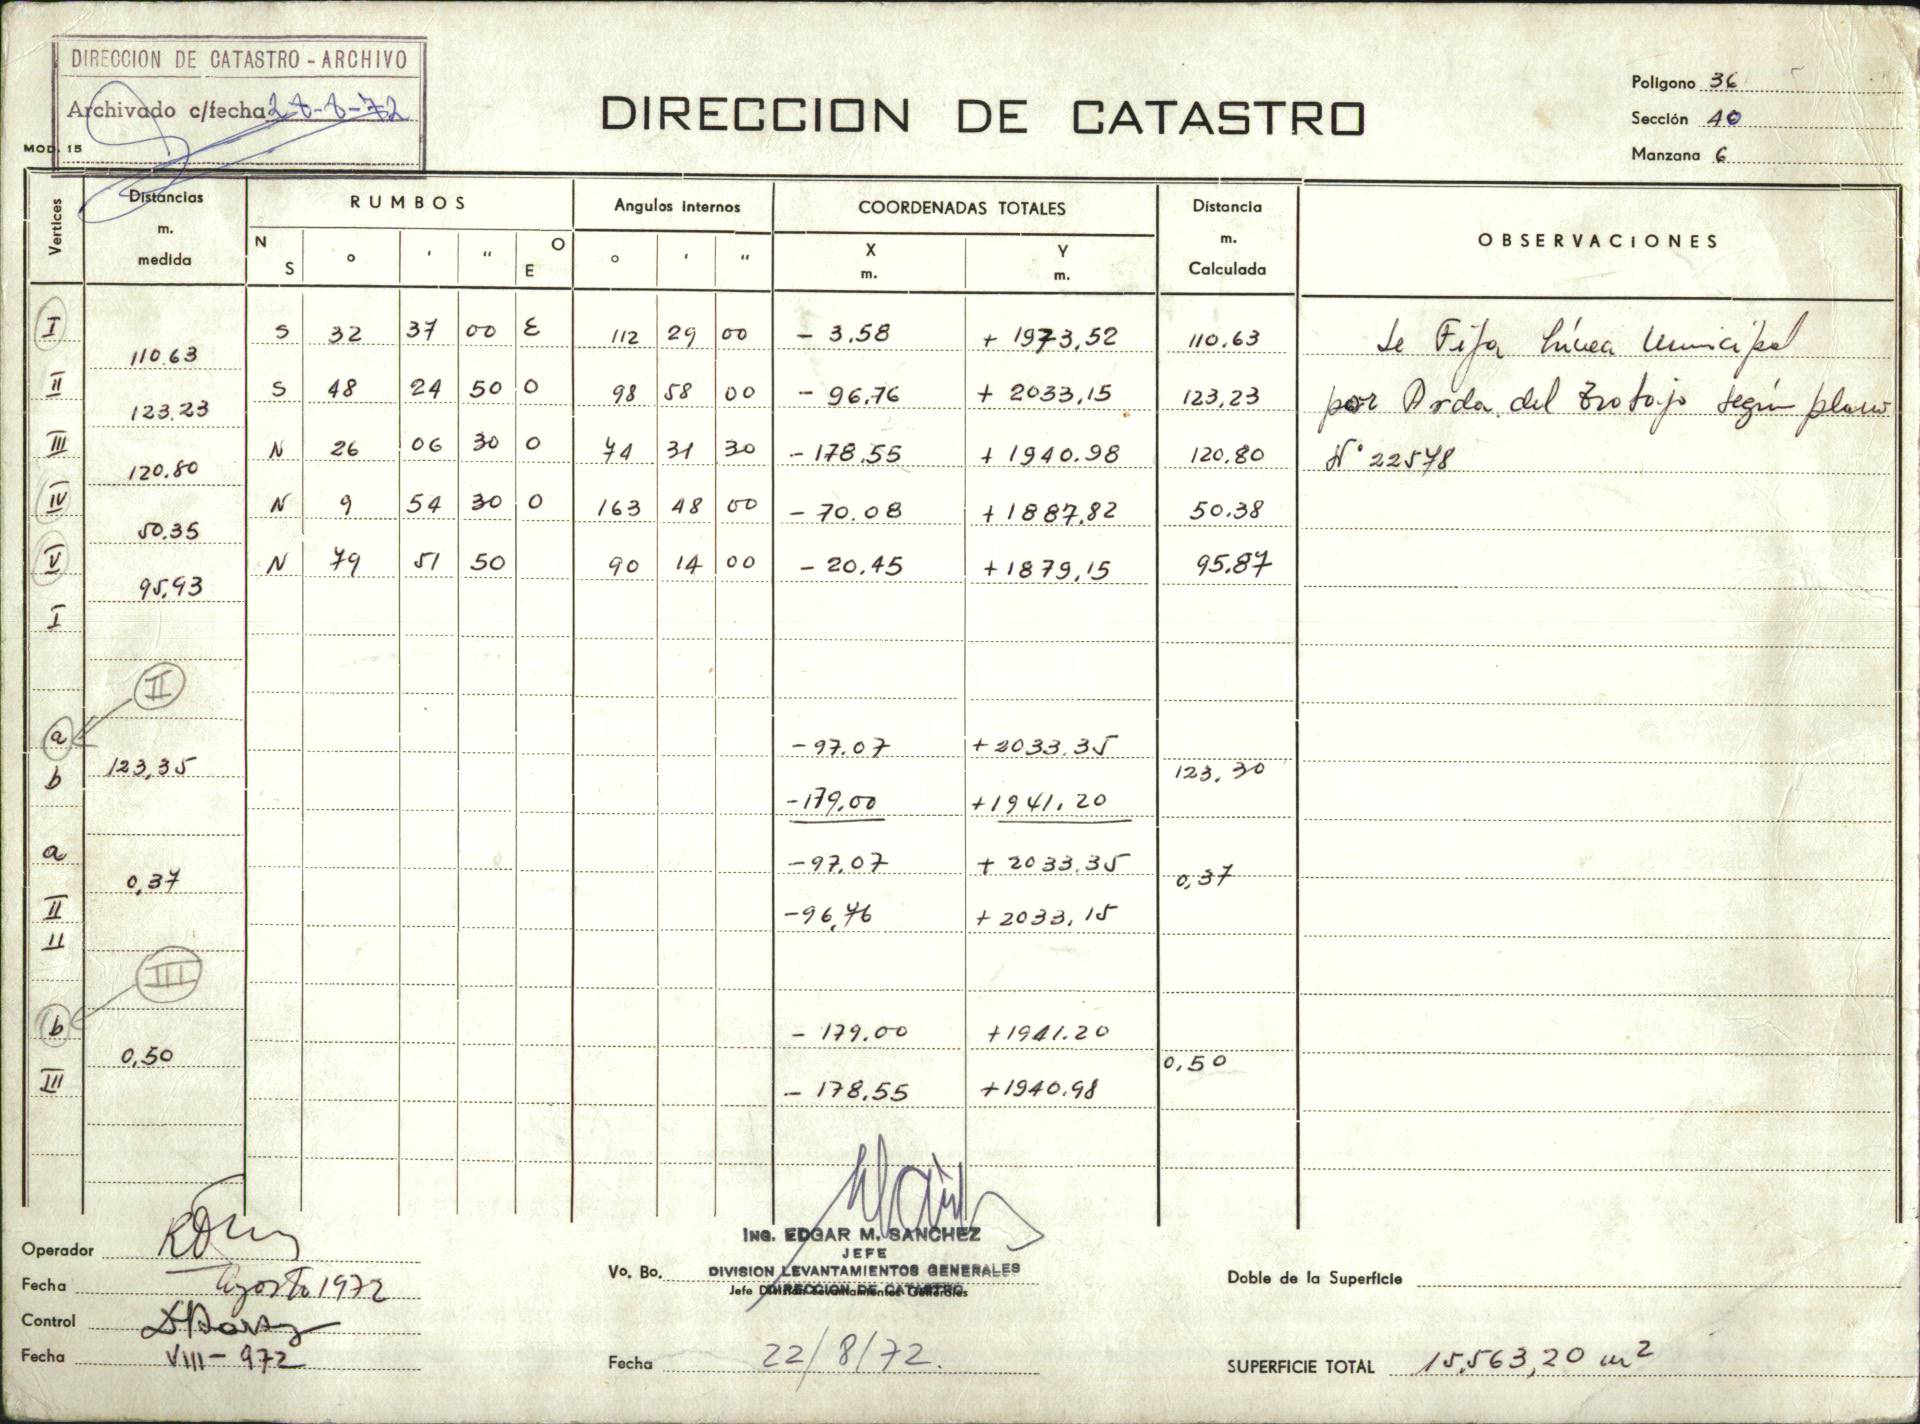 DIRECCION DE CATASTRO - ARCHIVO
Archivado c/fecha 28-8-72
MOD. 15
DIRECCION DE CATASTRO
Poligono 36
Sección 40
Manzana 6
Vertices
Distancias m. medida
RUMBOS
Angulos internos
COORDENADAS TOTALES
Distancia m. Calculada
OBSERVACIONES
N S ° ' " O E
° ' "
X m. Y m.
I S 32 37 00 E 112 29 00 - 3.58 + 1973,52 110.63 Se Fija Línea Municipal
110.63
II S 48 24 50 O 98 58 00 - 96.76 + 2033,15 123,23 por Avda. del Trabajo según plano
123.23
III N 26 06 30 O 74 31 30 - 178.55 + 1940.98 120.80 N° 22578
120.80
IV N 9 54 30 O 163 48 00 - 70.08 + 1887,82 50.38
50.35
V N 79 51 50 90 14 00 - 20.45 + 1879,15 95.87
95,93
I
II
a - 97.07 + 2033.35
b 123,35 123,30
- 179,00 + 1941,20
a - 97.07 + 2033.35
0,37 0,37
II - 96,76 + 2033,15
II
III
b - 179.00 + 1941.20
0,50 0,50
III - 178.55 + 1940.98
Operador
Fecha Agosto 1972
Control
Fecha VIII - 972
Ing. EDGAR M. SANCHEZ
JEFE
Vo. Bo. DIVISION LEVANTAMIENTOS GENERALES
DIRECCION DE CATASTRO
Jefe División Levantamientos Generales
Fecha 22/8/72.
Doble de la Superficie
SUPERFICIE TOTAL 15.563,20 m²